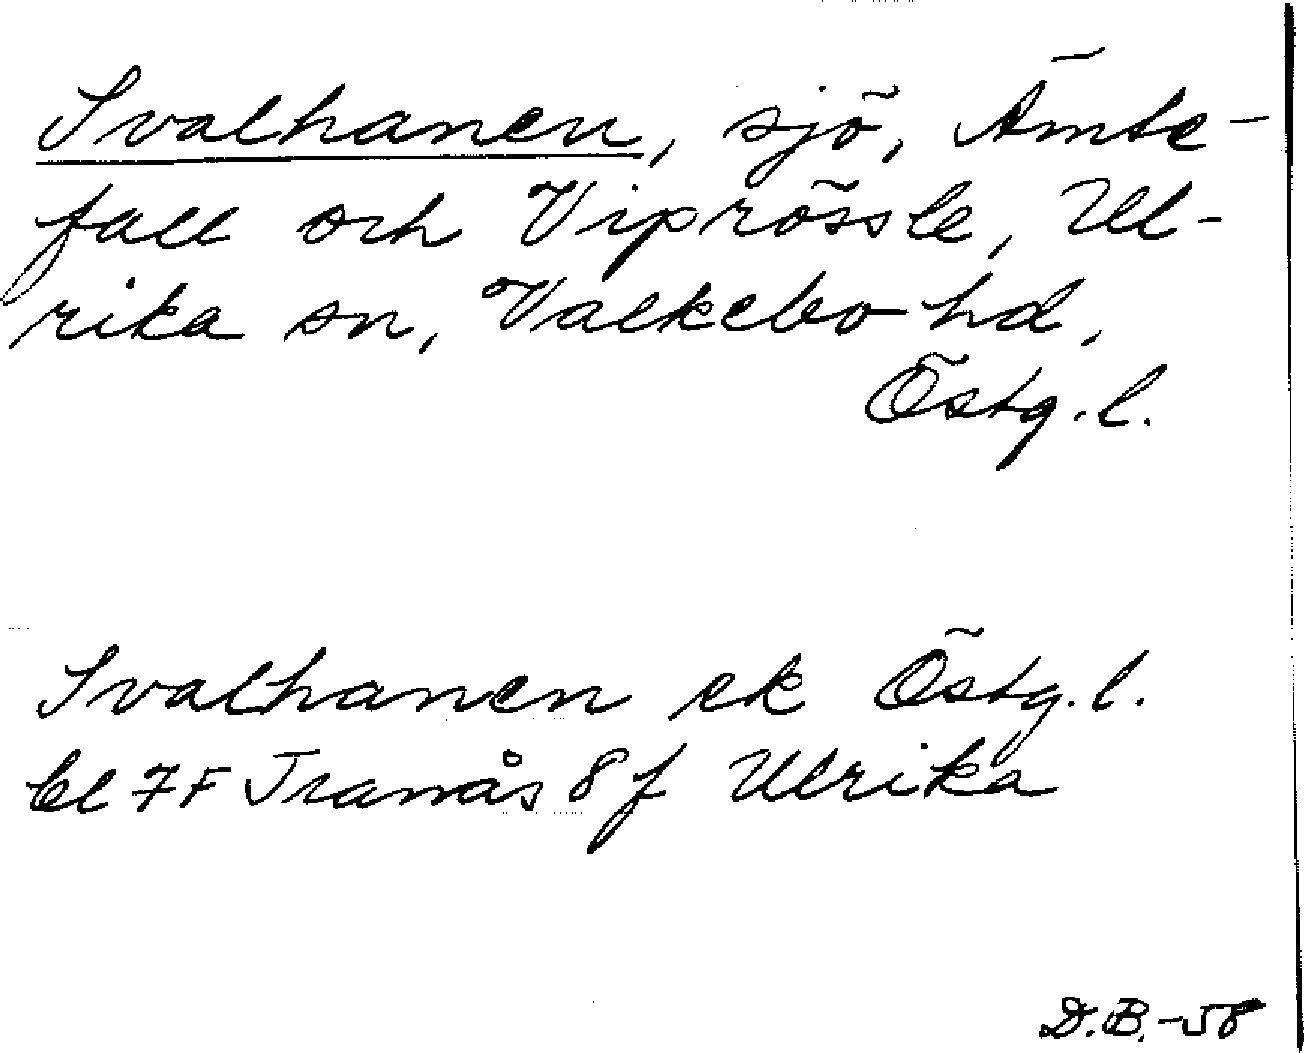 Svalhanen, sjö, Ämte-
fall och Viprössle, Ul-
rika sn, Valkebo hd,
Östg. l.
Svalhanen ek Östg. l.
bl 7F Tranås 8f Ulrika
D.B.-58